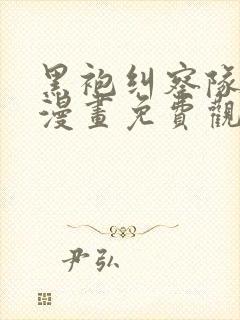 黑袍纠察隊
漫畫免費觀
尹弘